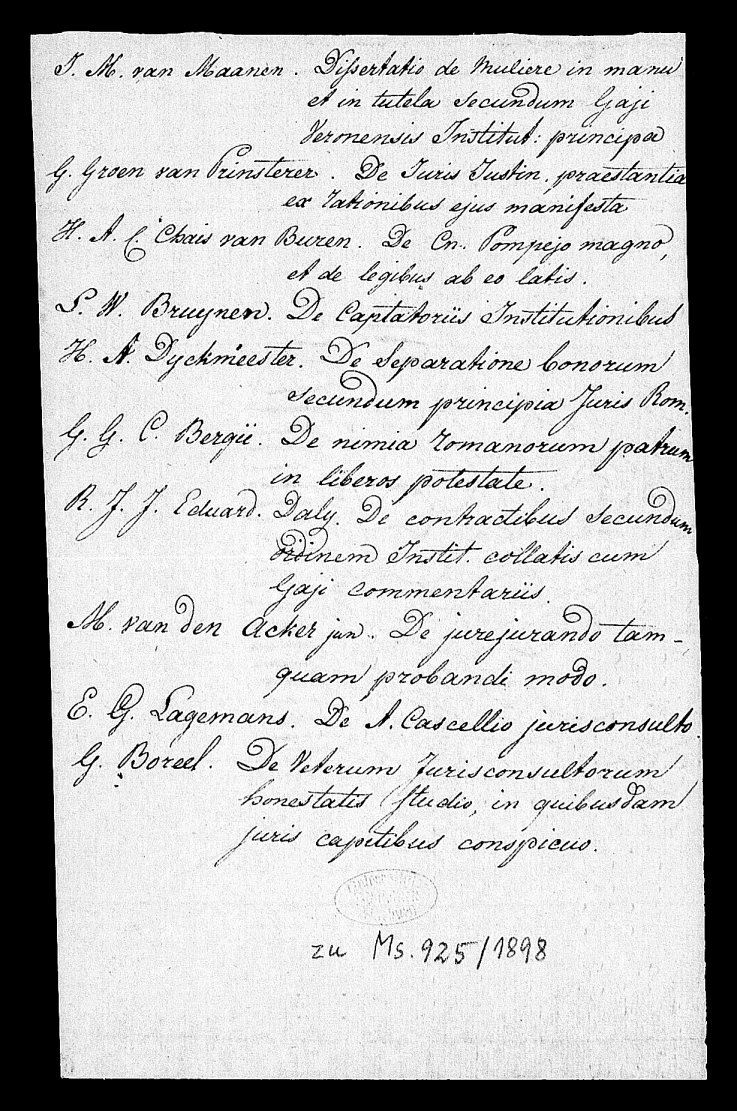 J. M. van Maanen. Dissertatio de muliere in manu
et in tutela secundum Gaji
Veronensis Institut: principa
G. Groen van Prinsterer. De Juris Justin. praestantia
ex rationibus ejus manifesta
H. A. C. Chais van Buren. De Cn. Pompejo magno,
et de legibus ab eo latis.
L. W. Bruynen. De Captatoriis Institutionibus
H. A. Dyckmeester. De Separatione bonorum
secundum principia Juris Rom.
G. G. C. Bergü. De nimia romanorum patrum
in liberos potestate.
R. J. J. Eduard. Daly. De contractibus secundum
ordinem Instit. collatis cum
Gaji commentariis.
M. van den Acker jun. De jurejurando tam-
quam probandi modo.
E. G. Lagemans. De A. Cascellio jurisconsulto.
G. Boreel. De Veterum Jurisconsultorum
honestatis studio, in quibusdam
juris capitibus conspicuo.
zu Ms. 925/1898